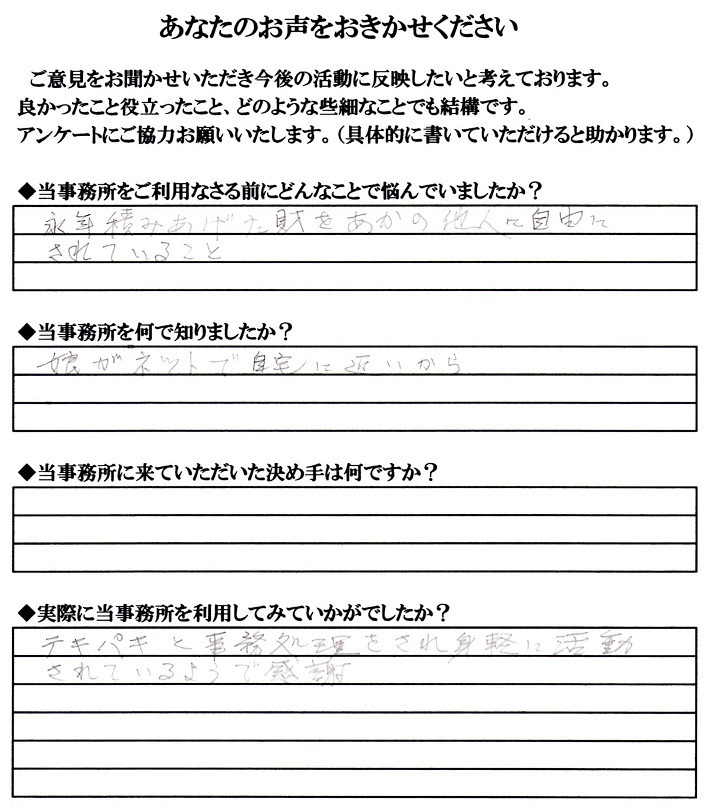 あなたのお声をおきかせください
ご意見をお聞かせいただき今後の活動に反映したいと考えております。
良かったこと役立ったこと、どのような些細なことでも結構です。
アンケートにご協力お願いいたします。（具体的に書いていただけると助かります。）
◆当事務所をご利用なさる前にどんなことで悩んでいましたか？
永年積みあげた財をあかの他人に自由に
されていること
◆当事務所を何で知りましたか？
娘がネットで自宅に近いから
◆当事務所に来ていただいた決め手は何ですか？
◆実際に当事務所を利用してみていかがでしたか？
テキパキと事務処理をされ身軽に活動
されているようで感謝